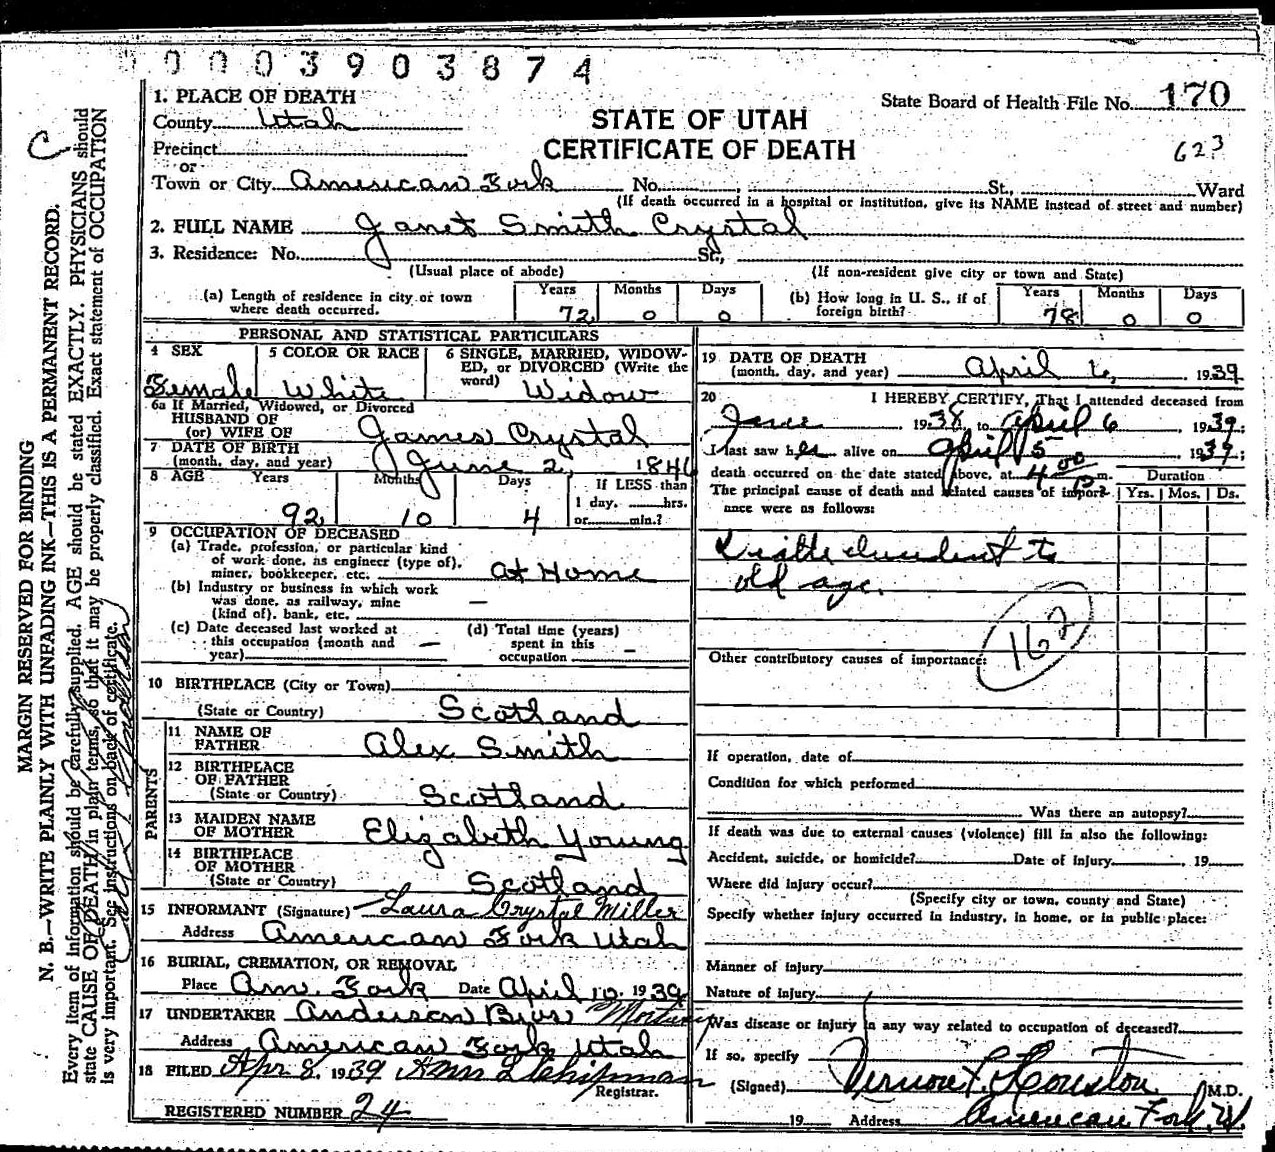 0003903874
1. PLACE OF DEATH
County Utah
Precinct
or
Town or City American Fork No. , St., Ward
(If death occurred in a hospital or institution, give its NAME instead of street and number)
STATE OF UTAH
CERTIFICATE OF DEATH
State Board of Health File No. 170
623
2. FULL NAME Janet Smith Crystal
3. Residence: No. St.,
(Usual place of abode) (If non-resident give city or town and State)
(a) Length of residence in city or town where death occurred. Years 72 Months 0 Days 0
(b) How long in U. S., if of foreign birth? Years 78 Months 0 Days 0
PERSONAL AND STATISTICAL PARTICULARS
4 SEX Female
5 COLOR OR RACE White
6 SINGLE, MARRIED, WIDOWED, or DIVORCED (Write the word) Widow
6a If Married, Widowed, or Divorced
HUSBAND OF
(or) WIFE OF James Crystal
7 DATE OF BIRTH
(month, day, and year) June 2, 1846
8 AGE Years 92 Months 10 Days 4 If LESS than 1 day, hrs. or min.?
9 OCCUPATION OF DECEASED
(a) Trade, profession, or particular kind
of work done, as engineer (type of),
miner, bookkeeper, etc. at Home
(b) Industry or business in which work
was done, as railway, mine
(kind of), bank, etc. —
(c) Date deceased last worked at
this occupation (month and
year) —
(d) Total time (years)
spent in this
occupation —
10 BIRTHPLACE (City or Town)
(State or Country) Scotland
PARENTS
11 NAME OF
FATHER Alex Smith
12 BIRTHPLACE
OF FATHER
(State or Country) Scotland
13 MAIDEN NAME
OF MOTHER Elizabeth Young
14 BIRTHPLACE
OF MOTHER
(State or Country) Scotland
15 INFORMANT (Signature) Laura Crystal Miller
Address American Fork Utah
16 BURIAL, CREMATION, OR REMOVAL
Place Am. Fork Date April 10, 1939
17 UNDERTAKER Anderson Bros Mortuary
Address American Fork Utah
18 FILED Apr 8, 1939 Ann L Chipman
Registrar.
REGISTERED NUMBER 24
19 DATE OF DEATH
(month, day, and year) April 6, 1939
20 I HEREBY CERTIFY, That I attended deceased from
June 1938, to April 6 1939;
I last saw her alive on April 5 1939;
death occurred on the date stated above, at 4 00 m.
The principal cause of death and related causes of importance were as follows:
Duration
Yrs. Mos. Ds.
to
old age.
162
Other contributory causes of importance:
If operation, date of
Condition for which performed
Was there an autopsy?
If death was due to external causes (violence) fill in also the following:
Accident, suicide, or homicide? Date of injury , 19
Where did injury occur?
(Specify city or town, county and State)
Specify whether injury occurred in industry, in home, or in public place:
Manner of injury
Nature of injury
Was disease or injury in any way related to occupation of deceased?
If so, specify
(Signed) Vernon F. Houston M.D.
19 Address American Fork, U.
MARGIN RESERVED FOR BINDING
N. B.—WRITE PLAINLY WITH UNFADING INK—THIS IS A PERMANENT RECORD.
Every item of information should be carefully supplied. AGE should be stated EXACTLY. PHYSICIANS should
state CAUSE OF DEATH in plain terms, so that it may be properly classified. Exact statement of OCCUPATION
is very important. See instructions on back of certificate.
C